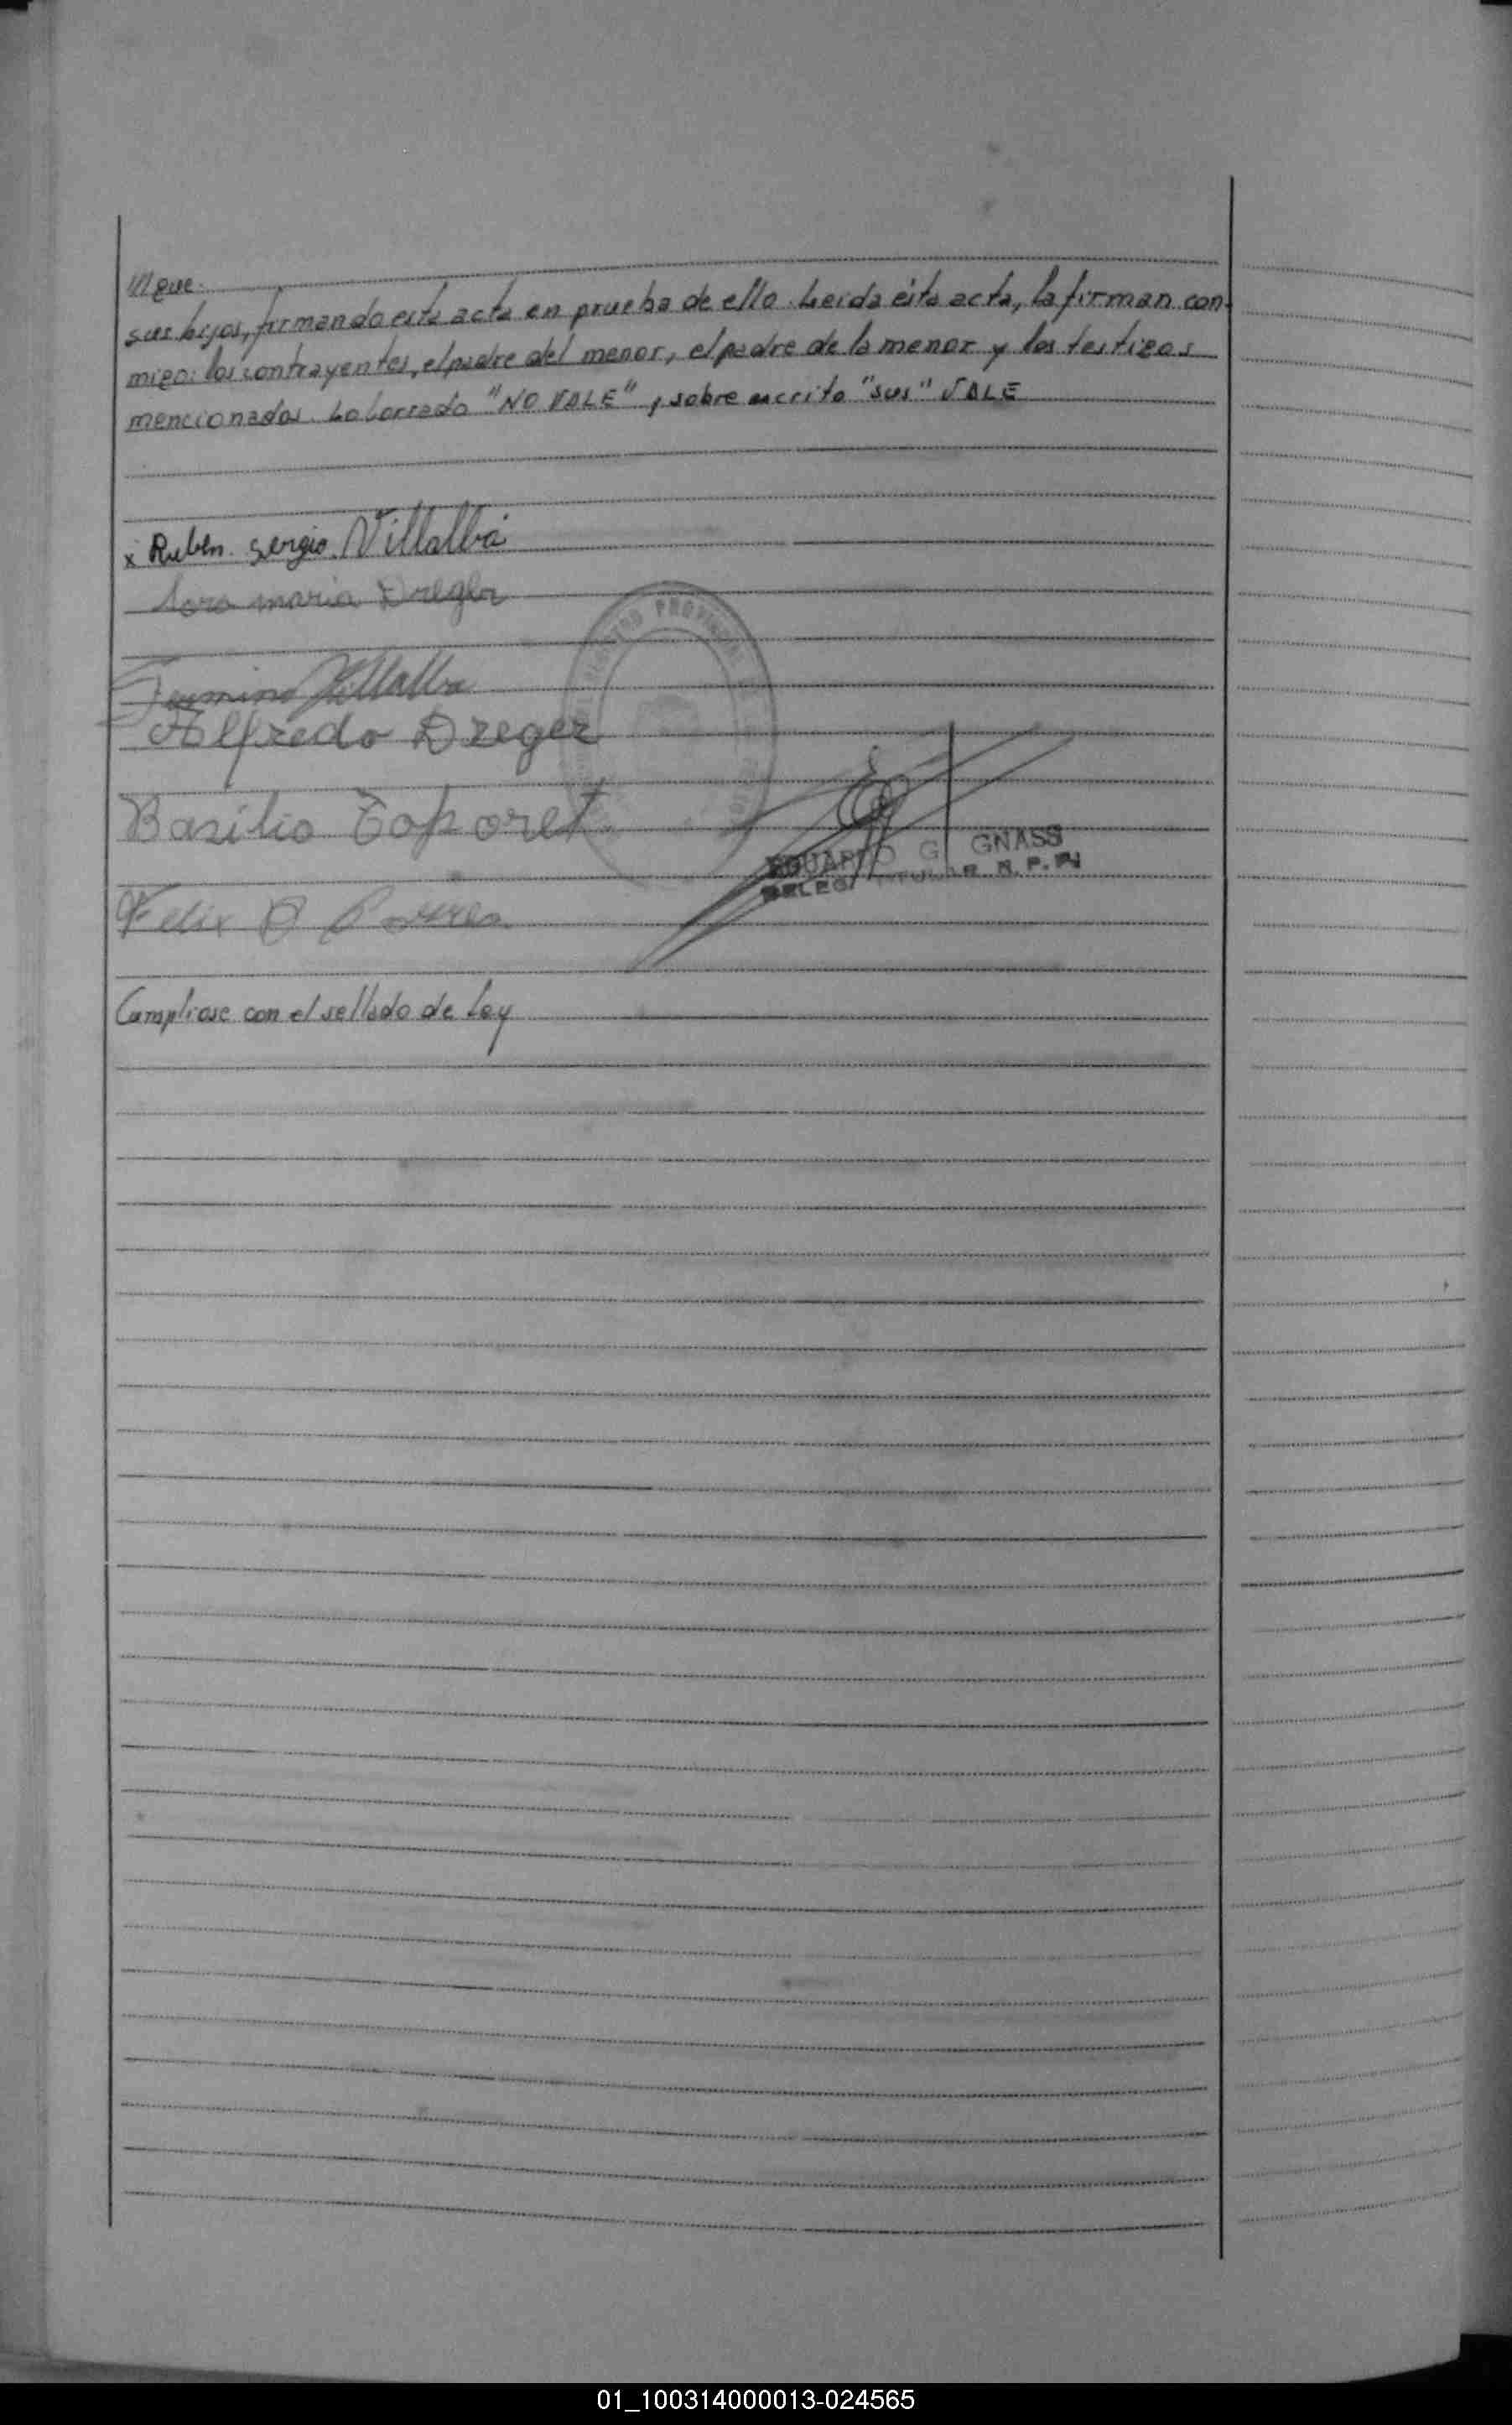 sus hijos, firmando esta acta en prueba de ello. Leída ésta acta, la firman con-
migo: los contrayentes, el padre del menor, el padre de la menor y los testigos
mencionados. Lo borrado "NO VALE", sobre escrito "sus" VALE
x Ruben. sergio. Villalba
Sara maria Dreger
Fermino Villalba
Alfredo Dreger
PROVINCIAL
Basilio Toporet
EDUARDO G. GNASS
TITULAR R. P. P.
Felix
Cumpliose con el sellado de Ley
01_100314000013-024565